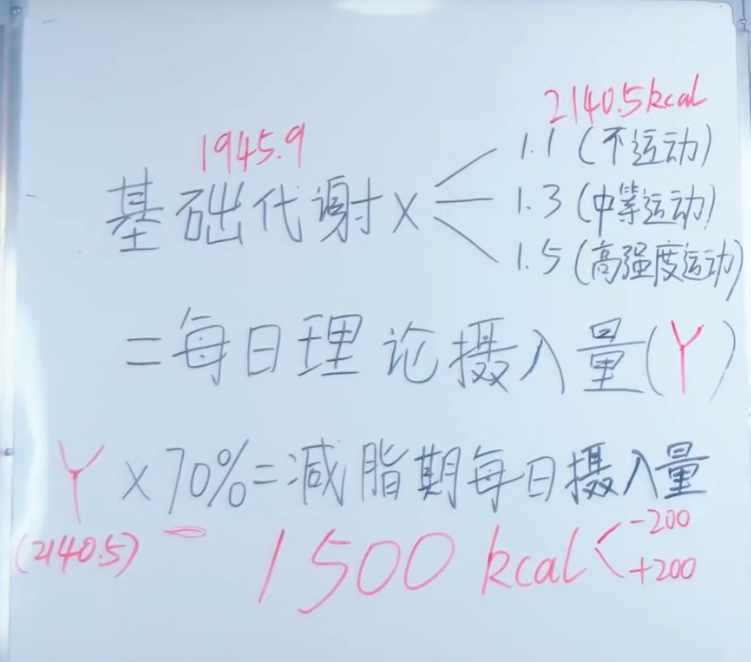 2140.5kcal
1945.9
1.1 (不运动)
基础代谢 × 1.3 (中等运动)
1.5 (高强度运动)
=每日理论摄入量(Y)
Y × 70%=减脂期每日摄入量
(2140.5)
1500 kcal < -200
+200